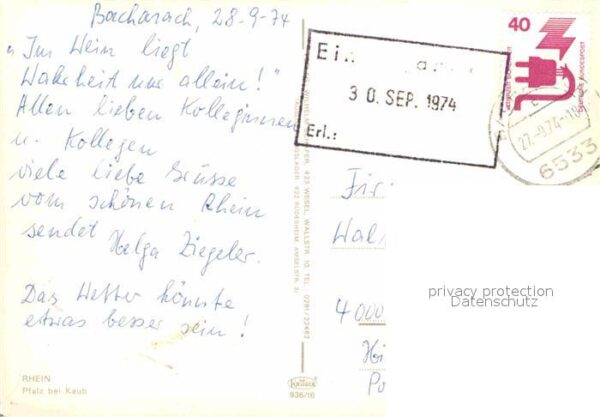 Bacharach, 28-9-74
"Im Wein liegt
Wahrheit nur allein!"
Allen lieben Kolleginnen
u. Kollegen
viele liebe Grüsse
vom schönen Rhein
sendet
Helga Ziegeler.
Das Wetter könnte
etwas besser sein!
RHEIN
Pfalz bei Kaub
Krüger
936/16
40
DEUTSCHE BUNDESPOST
Ei
30. SEP. 1974
Erl.:
6533
Fir
Wal
4000
privacy protection
Datenschutz